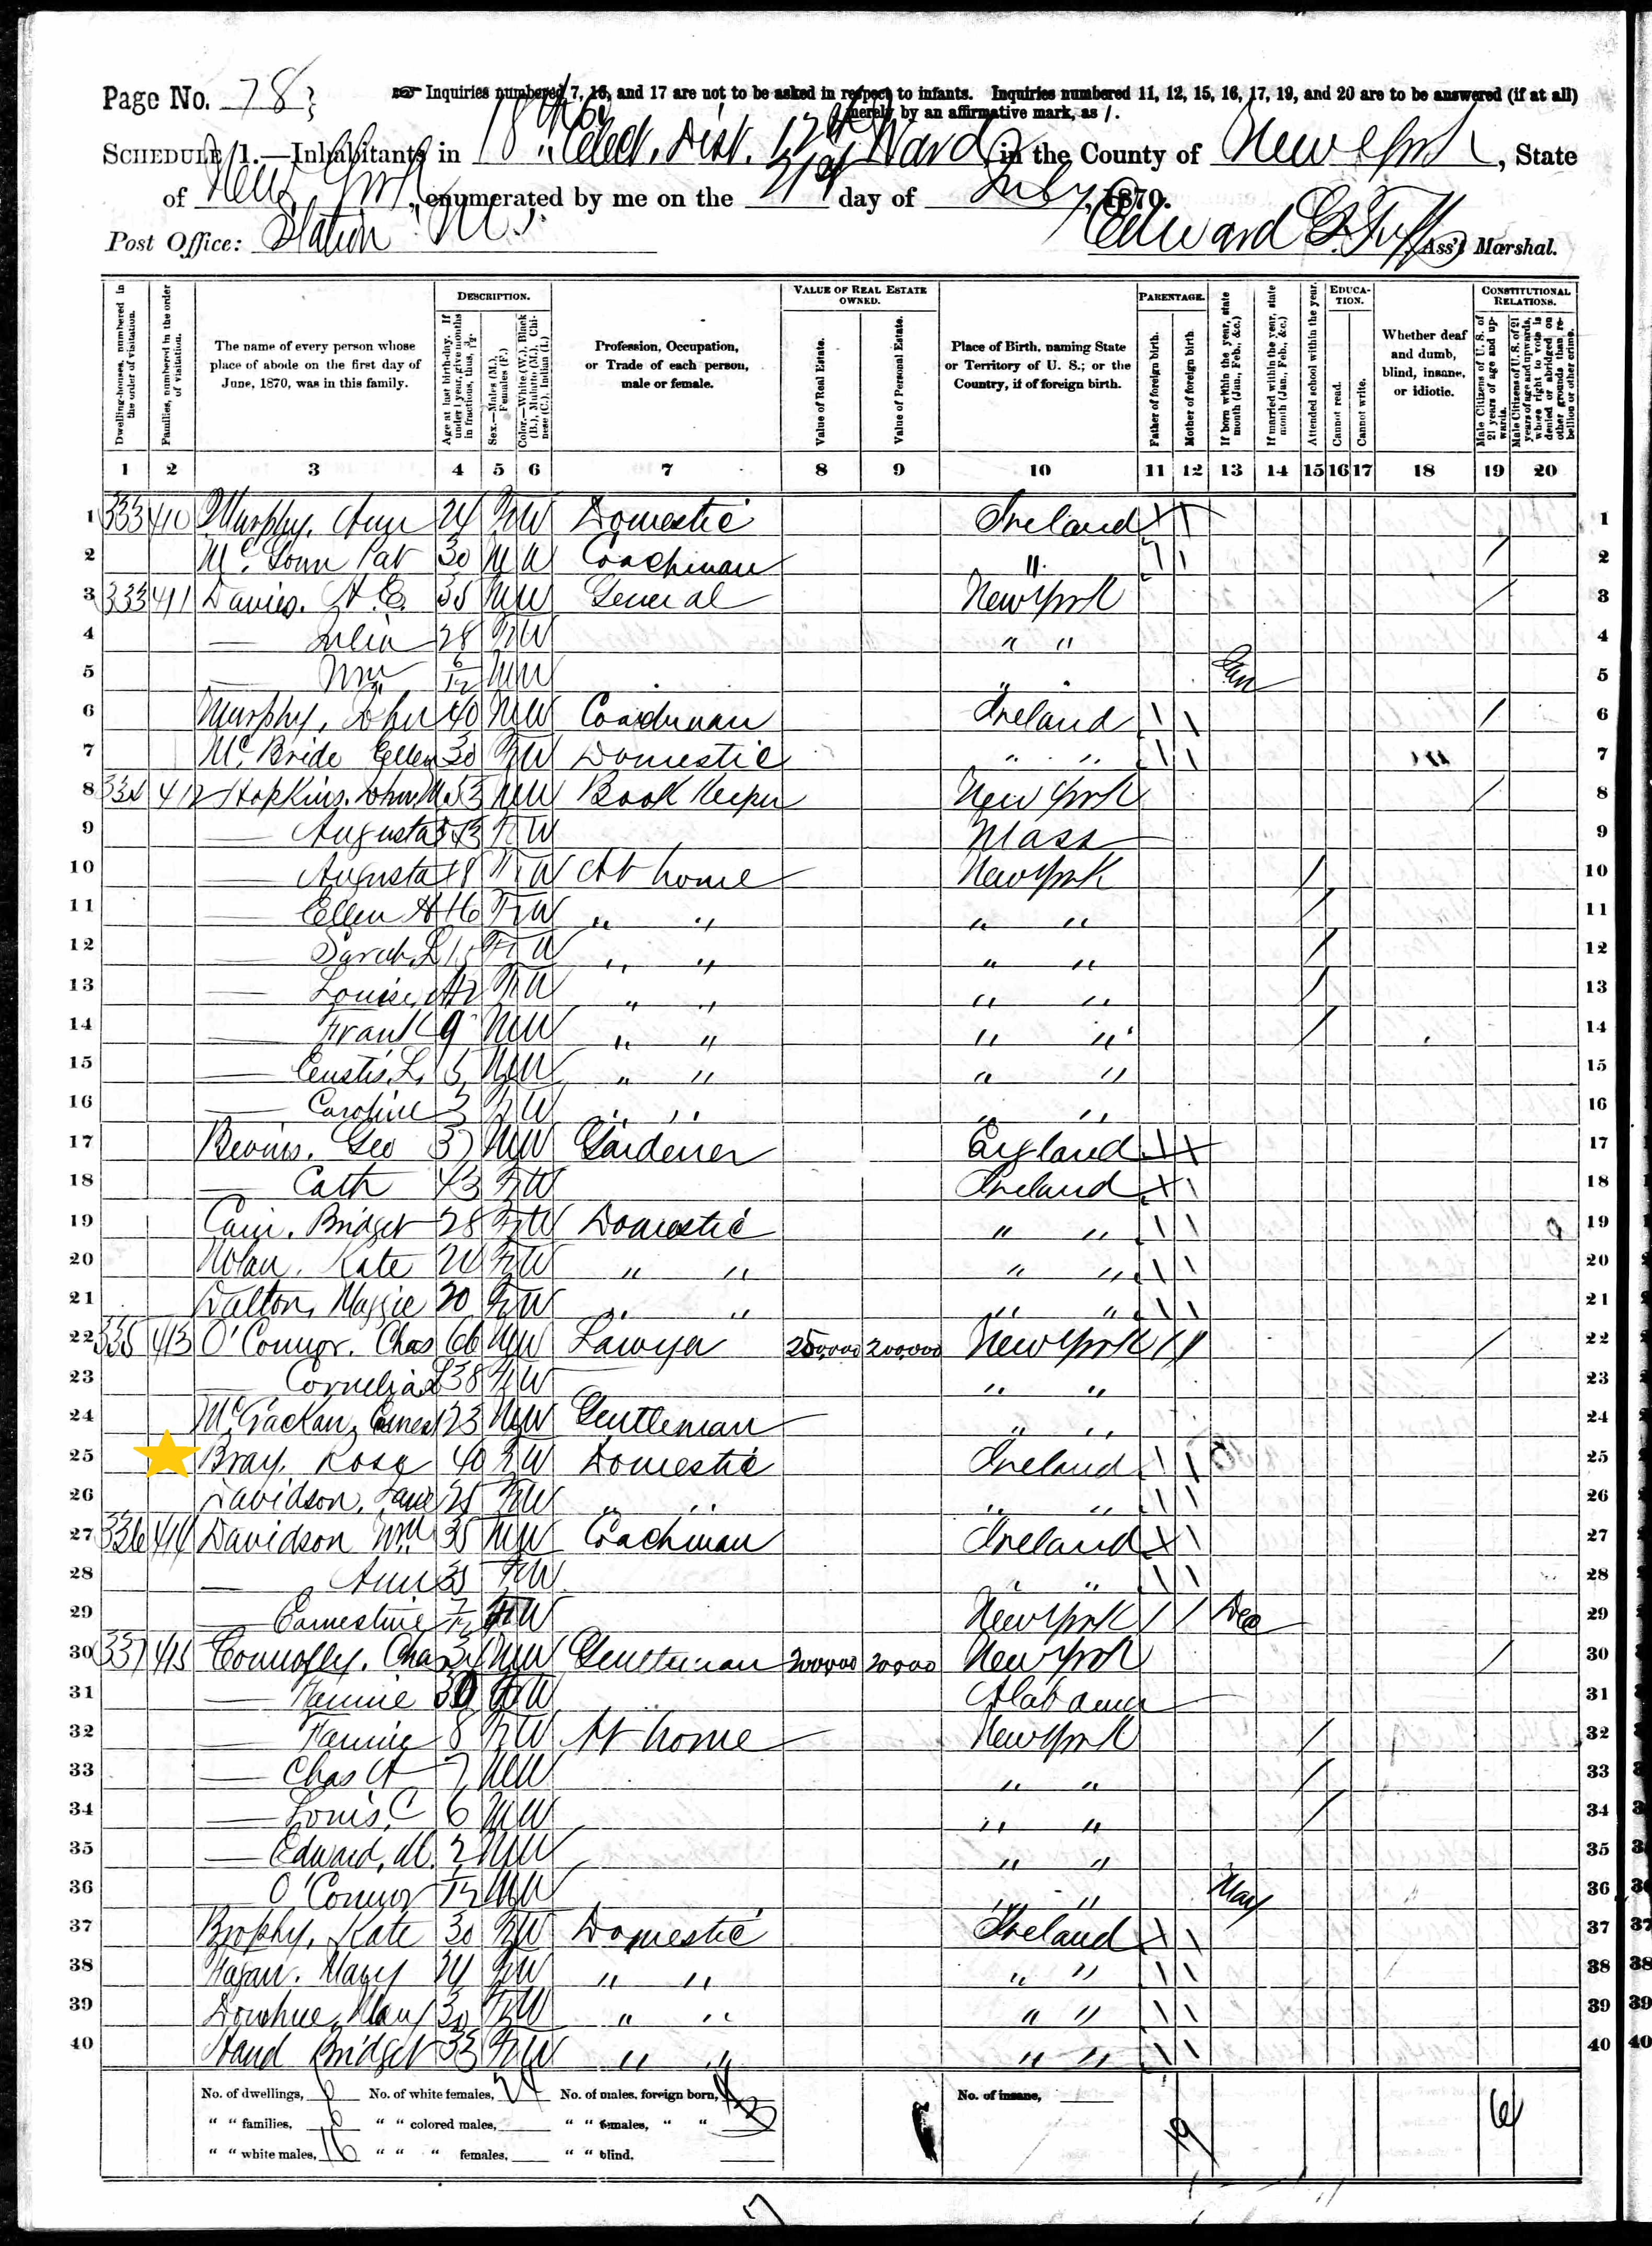 Page No. 78
Inquiries numbered 7, 16, and 17 are not to be asked in respect to infants. Inquiries numbered 11, 12, 15, 16, 17, 19, and 20 are to be answered (if at all)
merely by an affirmative mark, as /.
SCHEDULE 1.—Inhabitants in 18th Elect. Dist. 12th Ward, in the County of New York, State
of New York, enumerated by me on the 21st day of July, 1870.
Post Office: Station M. Edward G. Ass't Marshal.
Dwelling-houses, numbered in the order of visitation.
Families, numbered in the order of visitation.
The name of every person whose place of abode on the first day of June, 1870, was in this family.
DESCRIPTION.
Age at last birth-day. If under 1 year, give months in fractions, thus, 3/12.
Sex.—Males (M.), Females (F.)
Color.—White (W.), Black (B.), Mulatto (M.), Chinese (C.), Indian (I.)
Profession, Occupation, or Trade of each person, male or female.
VALUE OF REAL ESTATE OWNED.
Value of Real Estate.
Value of Personal Estate.
Place of Birth, naming State or Territory of U. S.; or the Country, if of foreign birth.
PARENTAGE.
Father of foreign birth.
Mother of foreign birth.
If born within the year, state month (Jan., Feb., &c.)
If married within the year, state month (Jan., Feb., &c.)
Attended school within the year.
EDUCATION.
Cannot read.
Cannot write.
Whether deaf and dumb, blind, insane, or idiotic.
CONSTITUTIONAL RELATIONS.
Male Citizens of U. S. of 21 years of age and upwards.
Male Citizens of U. S. of 21 years of age and upwards, whose right to vote is denied or abridged on other grounds than rebellion or other crime.
1 2 3 4 5 6 7 8 9 10 11 12 13 14 15 16 17 18 19 20
1 333 410 Murphy, Ann 24 F W Domestic Ireland / / 1
2 Mc Pat 30 M W Coachman " / / / 2
3 333 411 Davies. H. E. 35 M W General New York / 3
4 — Julia 28 F W " " 4
5 — Wm 6/12 M W " " Jan 5
6 Murphy, John 40 M W Coachman Ireland / / / 6
7 McBride Ellen 30 F W Domestic " " / / 7
8 334 412 Hopkins. John M 53 M W Book Keeper New York / 8
9 — Augusta 43 F W Mass 9
10 — Augusta 18 F W At home New York / 10
11 — Ellen H 16 F W " " " " / 11
12 — Sarah L 15 F W " " " " / 12
13 — Louise 12 F W " " " " / 13
14 — Frank 9 M W " " " " / 14
15 — Custis. L. 5 M W " " " " 15
16 — Caroline 3 F W " " " " 16
17 Bevins. Geo 37 M W Gardener England / / 17
18 — Cath 43 F W Ireland / / 18
19 Cain. Bridget 28 F W Domestic " " / / 19
20 Nolan. Kate 24 F W " " " " / / 20
21 Dalton, Maggie 20 F W " " " " / / 21
22 335 413 O'Connor. Chas 66 M W Lawyer 250000 200000 New York / / / 22
23 — Cornelia L 38 F W " " 23
24 McCracken, 23 M W Gentleman " " 24
25 Bray. Rose 40 F W Domestic Ireland / / 25
26 Davidson, Jane 25 F W " " " " / / 26
27 336 414 Davidson Wm 35 M W Coachman Ireland / / 27
28 — Ann 35 F W " " / / 28
29 — Earnestine 7/12 F W New York / / Dec 29
30 337 415 Connolly. Chas 34 M W Gentleman 200000 20000 New York / 30
31 — Fannie 30 F W Alabama 31
32 — Fannie 8 F W At home New York / 32
33 — Chas A 7 M W " " / 33
34 — Louis. C 6 M W " " / 34
35 — Edward. M. 2 M W " " 35
36 — O'Connor 1/12 M W " " May 36
37 Brophy, Kate 30 F W Domestic Ireland / / 37
38 Fagan. Mary 24 F W " " " " / / 38
39 Donohue, Mary 30 F W " " " " / / 39
40 Hand Bridget 35 F W " " " " / / 40
No. of dwellings, 6 No. of white females, 24 No. of males, foreign born, 4 No. of insane,
" " families, 6 " " colored males, " " females, " " 13 19 6
" " white males, 16 " " " females, " " blind,